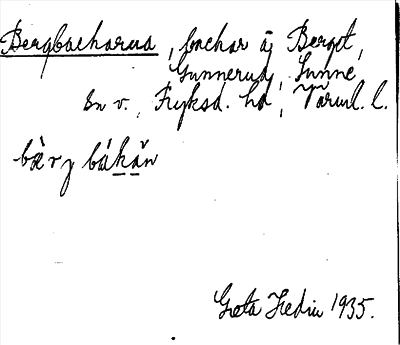 Bergbackarna, backar å Berget,
Gunnerud, Sunne,
sn v., Fryksd. hd, Värml. l.
bær j bákăn
Greta Hedin 1935.